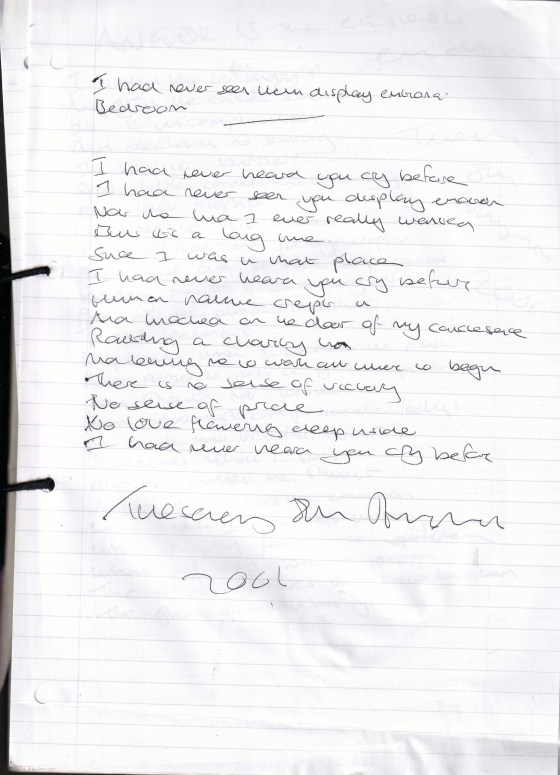 I had never seen them display
Bedroom
I had never heard you cry before
I had never seen you display emotion
Not the kind I ever really wanted
But it's a long time
Since I was in that place
I had never heard you cry before
Human nature crept in
And knocked on the door of my conscience
Rattling a charity tin
And leaving me to wonder where to begin
There is no sense of victory
No sense of pride
No love flowering deep inside
I had never heard you cry before
Tuesday 5th
2001